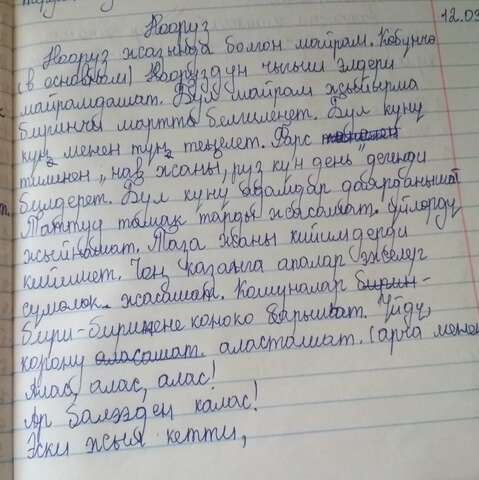 12.03
Нооруз
Нооруз жазында болгон майрам. Көбүнчө
(в основном) Нооруздун чыгыш элдери
майрамдашат. Бул майрам жыйырма
биринчи мартта белгиленет. Бул күнү
күн менен түн теңелет. Фарс
тилинен „нав жаңы, руз күн день" дегенди
билдерет. Бул күнү адамдар даярданышат
Таттуу тамак тарды жасашат. Үйлөрдү
жыйнашат. Таза жаңы кийимдерди
кийишет. Чоң казанга апалар
сүмөлөк жасашат. Кошуналар бирин-
бири-бирине конокко барышат. Үйдү,
корону аласашат. аласташат. (арча менен
Алас, алас, алас!
Ар балээден калас!
Эски жыл кетти,